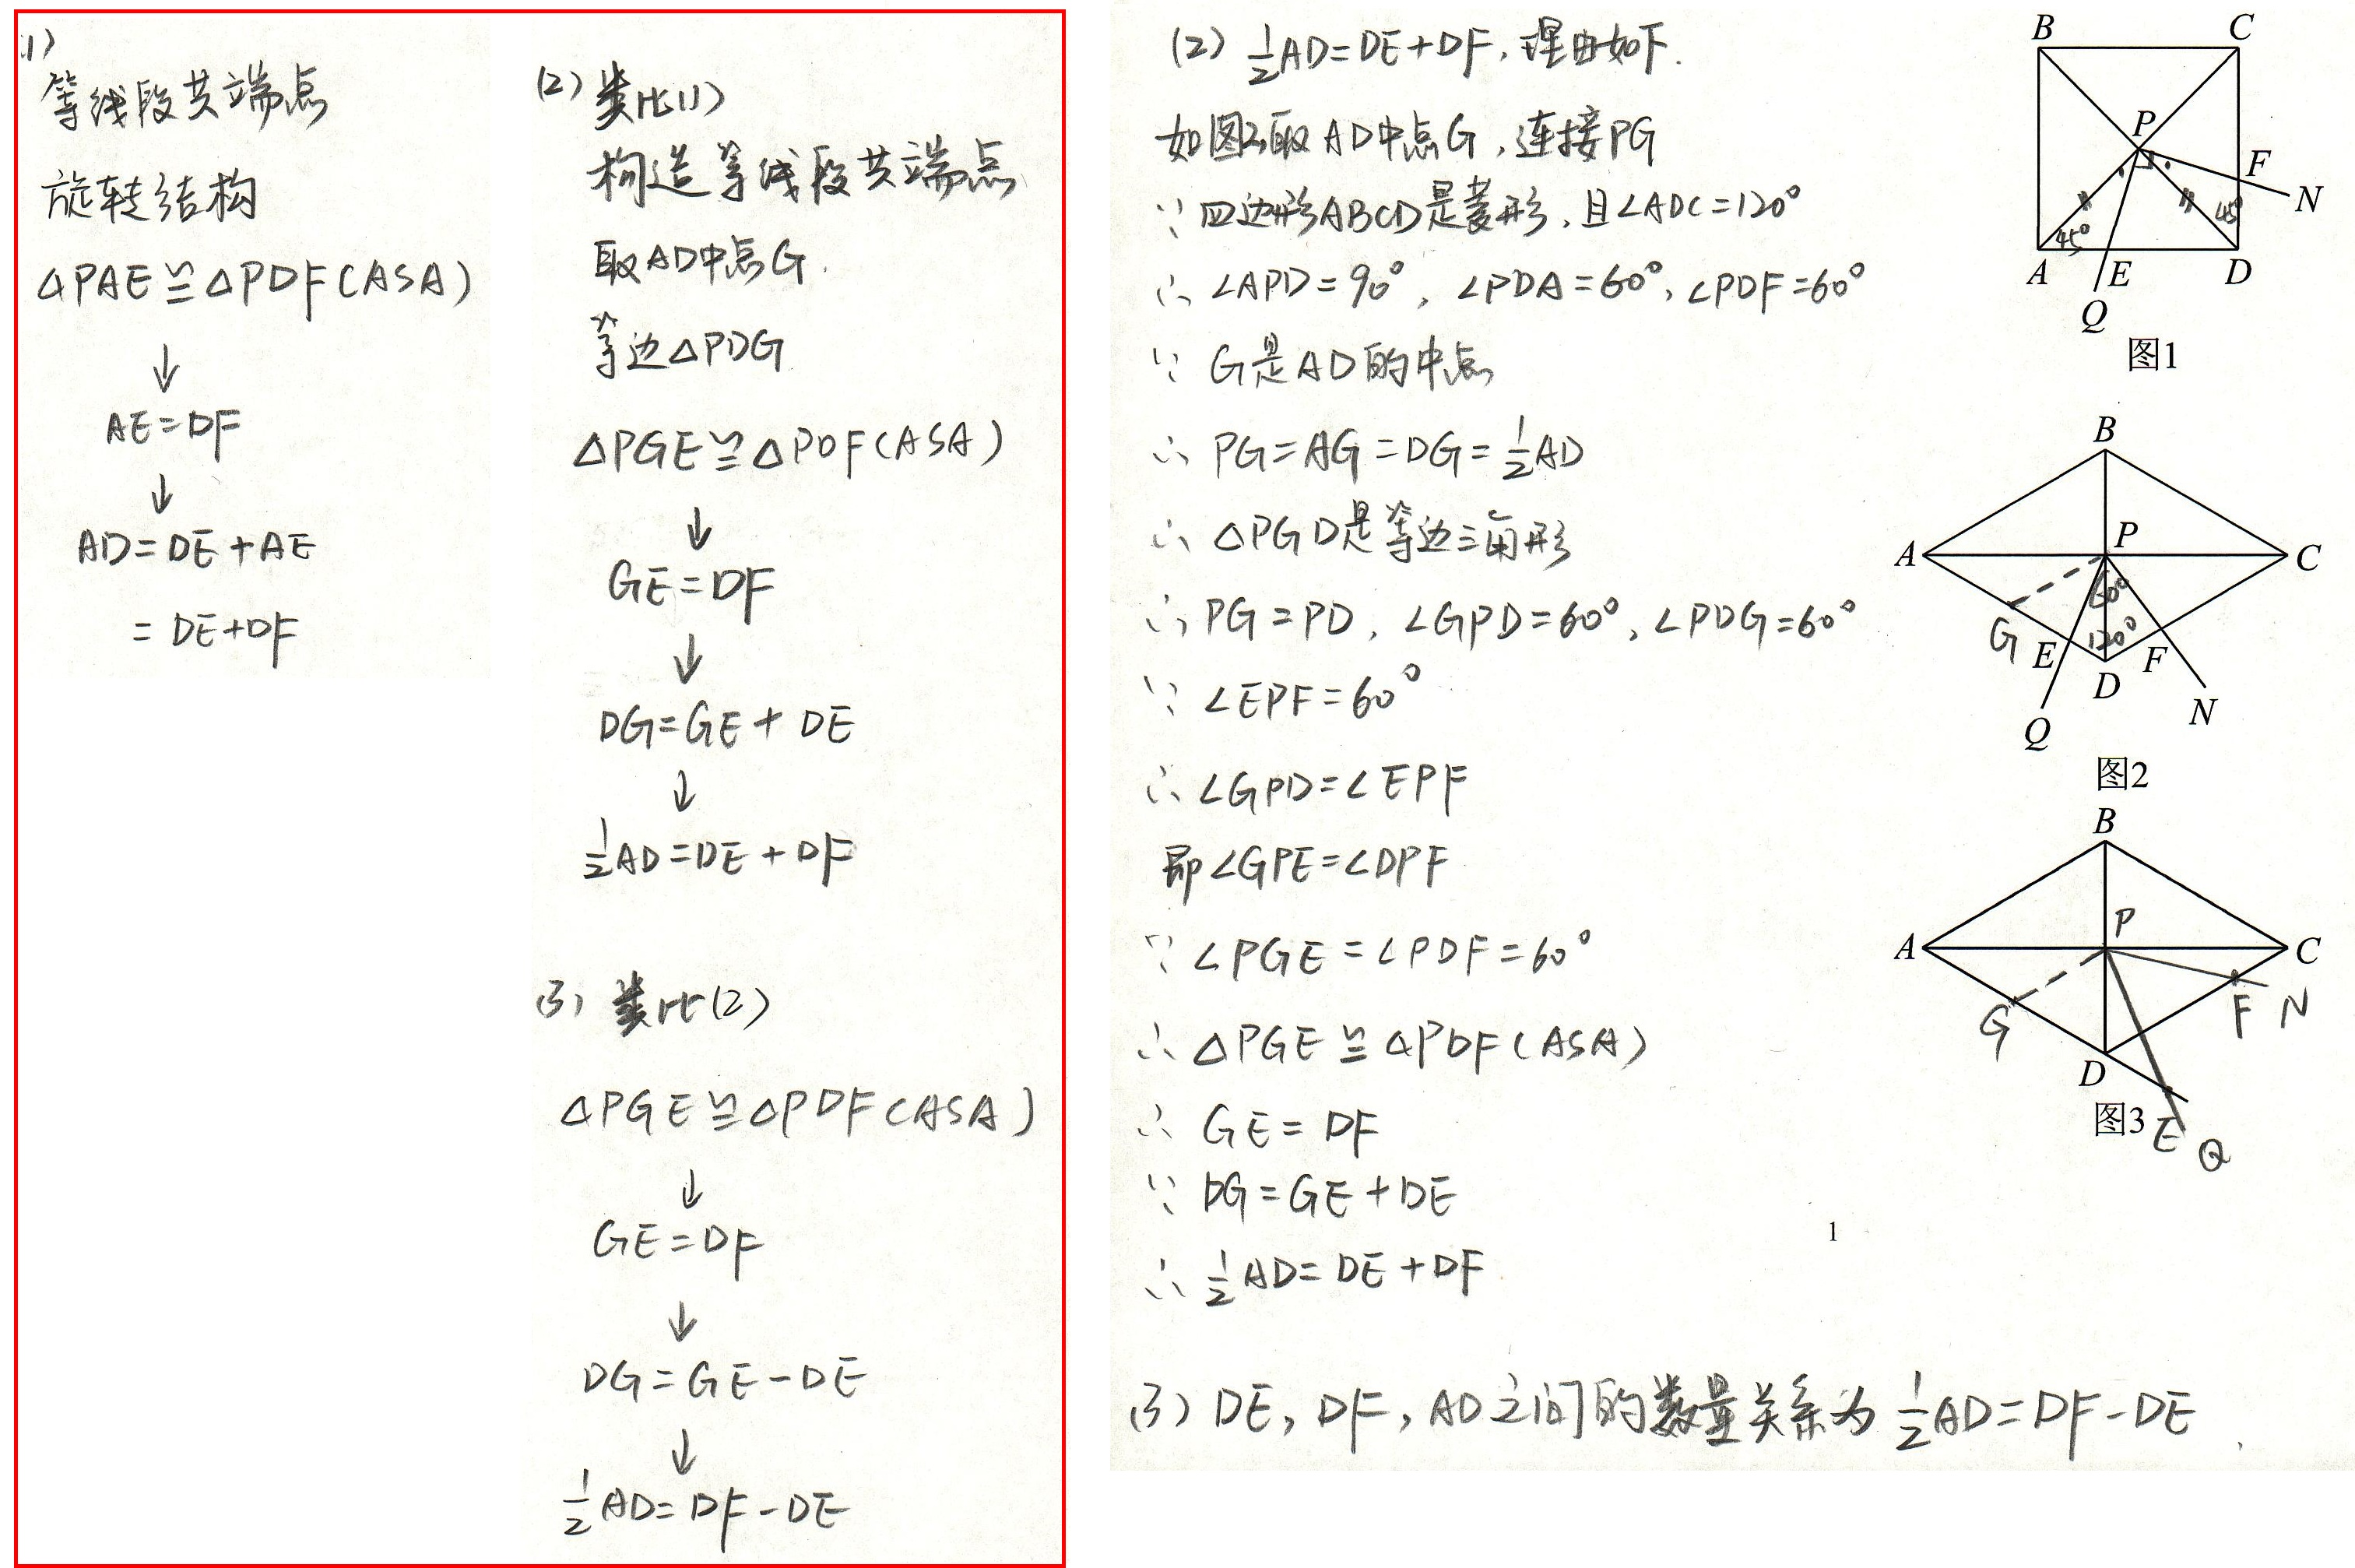 (1)
等线段共端点
旋转结构
△PAE≌△PDF(ASA)
↓
AE=DF
↓
AD=DE+AE
=DE+DF
(2) 类比(1)
构造等线段共端点
取AD中点G.
等边△PDG
△PGE≌△PDF(ASA)
↓
GE=DF
↓
DG=GE+DE
↓
½AD=DE+DF
(3) 类比(2)
△PGE≌△PDF(ASA)
↓
GE=DF
↓
DG=GE-DE
↓
½AD=DF-DE
(2) ½AD=DE+DF,理由如下.
如图2,取AD中点G,连接PG
∵四边形ABCD是菱形,且∠ADC=120°
∴∠APD=90°,∠PDA=60°,∠PDF=60°
∵G是AD的中点
∴PG=AG=DG=½AD
∴△PGD是等边三角形
∴PG=PD,∠GPD=60°,∠PDG=60°
∵∠EPF=60°
∴∠GPD=∠EPF
即∠GPE=∠DPF
∵∠PGE=∠PDF=60°
∴△PGE≌△PDF(ASA)
∴GE=DF
∵DG=GE+DE
∴½AD=DE+DF
(3) DE,DF,AD之间的数量关系为½AD=DF-DE.
B C
P
F
N
45° 45°
A E D
Q
图1
B
A P C
60°
G 120°
E F
D
N
Q
图2
B
P
A C
G F N
D
图3 E Q
1